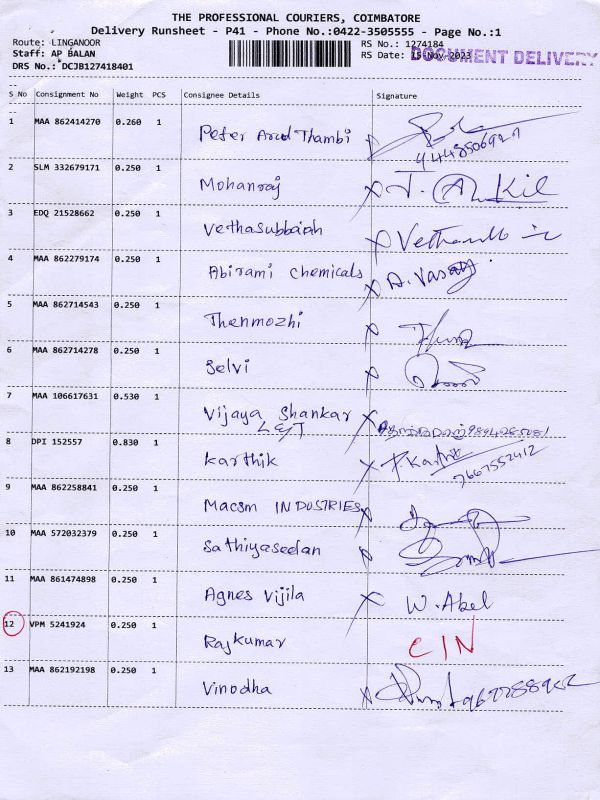 THE PROFESSIONAL COURIERS, COIMBATORE
Delivery Runsheet - P41 - Phone No.:0422-3505555 - Page No.:1
Route: LINGANOOR
Staff: AP BALAN
DRS No.: DCJB127418401
RS No.: 1274184
RS Date: 15-Nov-2023
DOCUMENT DELIVERY
S No Consignment No Weight PCS Consignee Details Signature
1 MAA 862414270 0.260 1 Peter Arul Thambi
2 SLM 332679171 0.250 1 Mohanraj
3 EDQ 21528662 0.250 1 Vethasubbaiah
4 MAA 862279174 0.250 1 Abirami Chemicals A. Vasa
5 MAA 862714543 0.250 1 Thenmozhi
6 MAA 862714278 0.250 1 Selvi
7 MAA 106617631 0.530 1 Vijaya Shankar
8 DPI 152557 0.830 1 Karthik 7667552412
9 MAA 862258841 0.250 1 Macsm INDUSTRIES
10 MAA 572032379 0.250 1 Sathiyaseelan
11 MAA 861474898 0.250 1 Agnes Vijila W. Abel
12 VPM 5241924 0.250 1 Rajkumar CIN
13 MAA 862192198 0.250 1 Vinodha